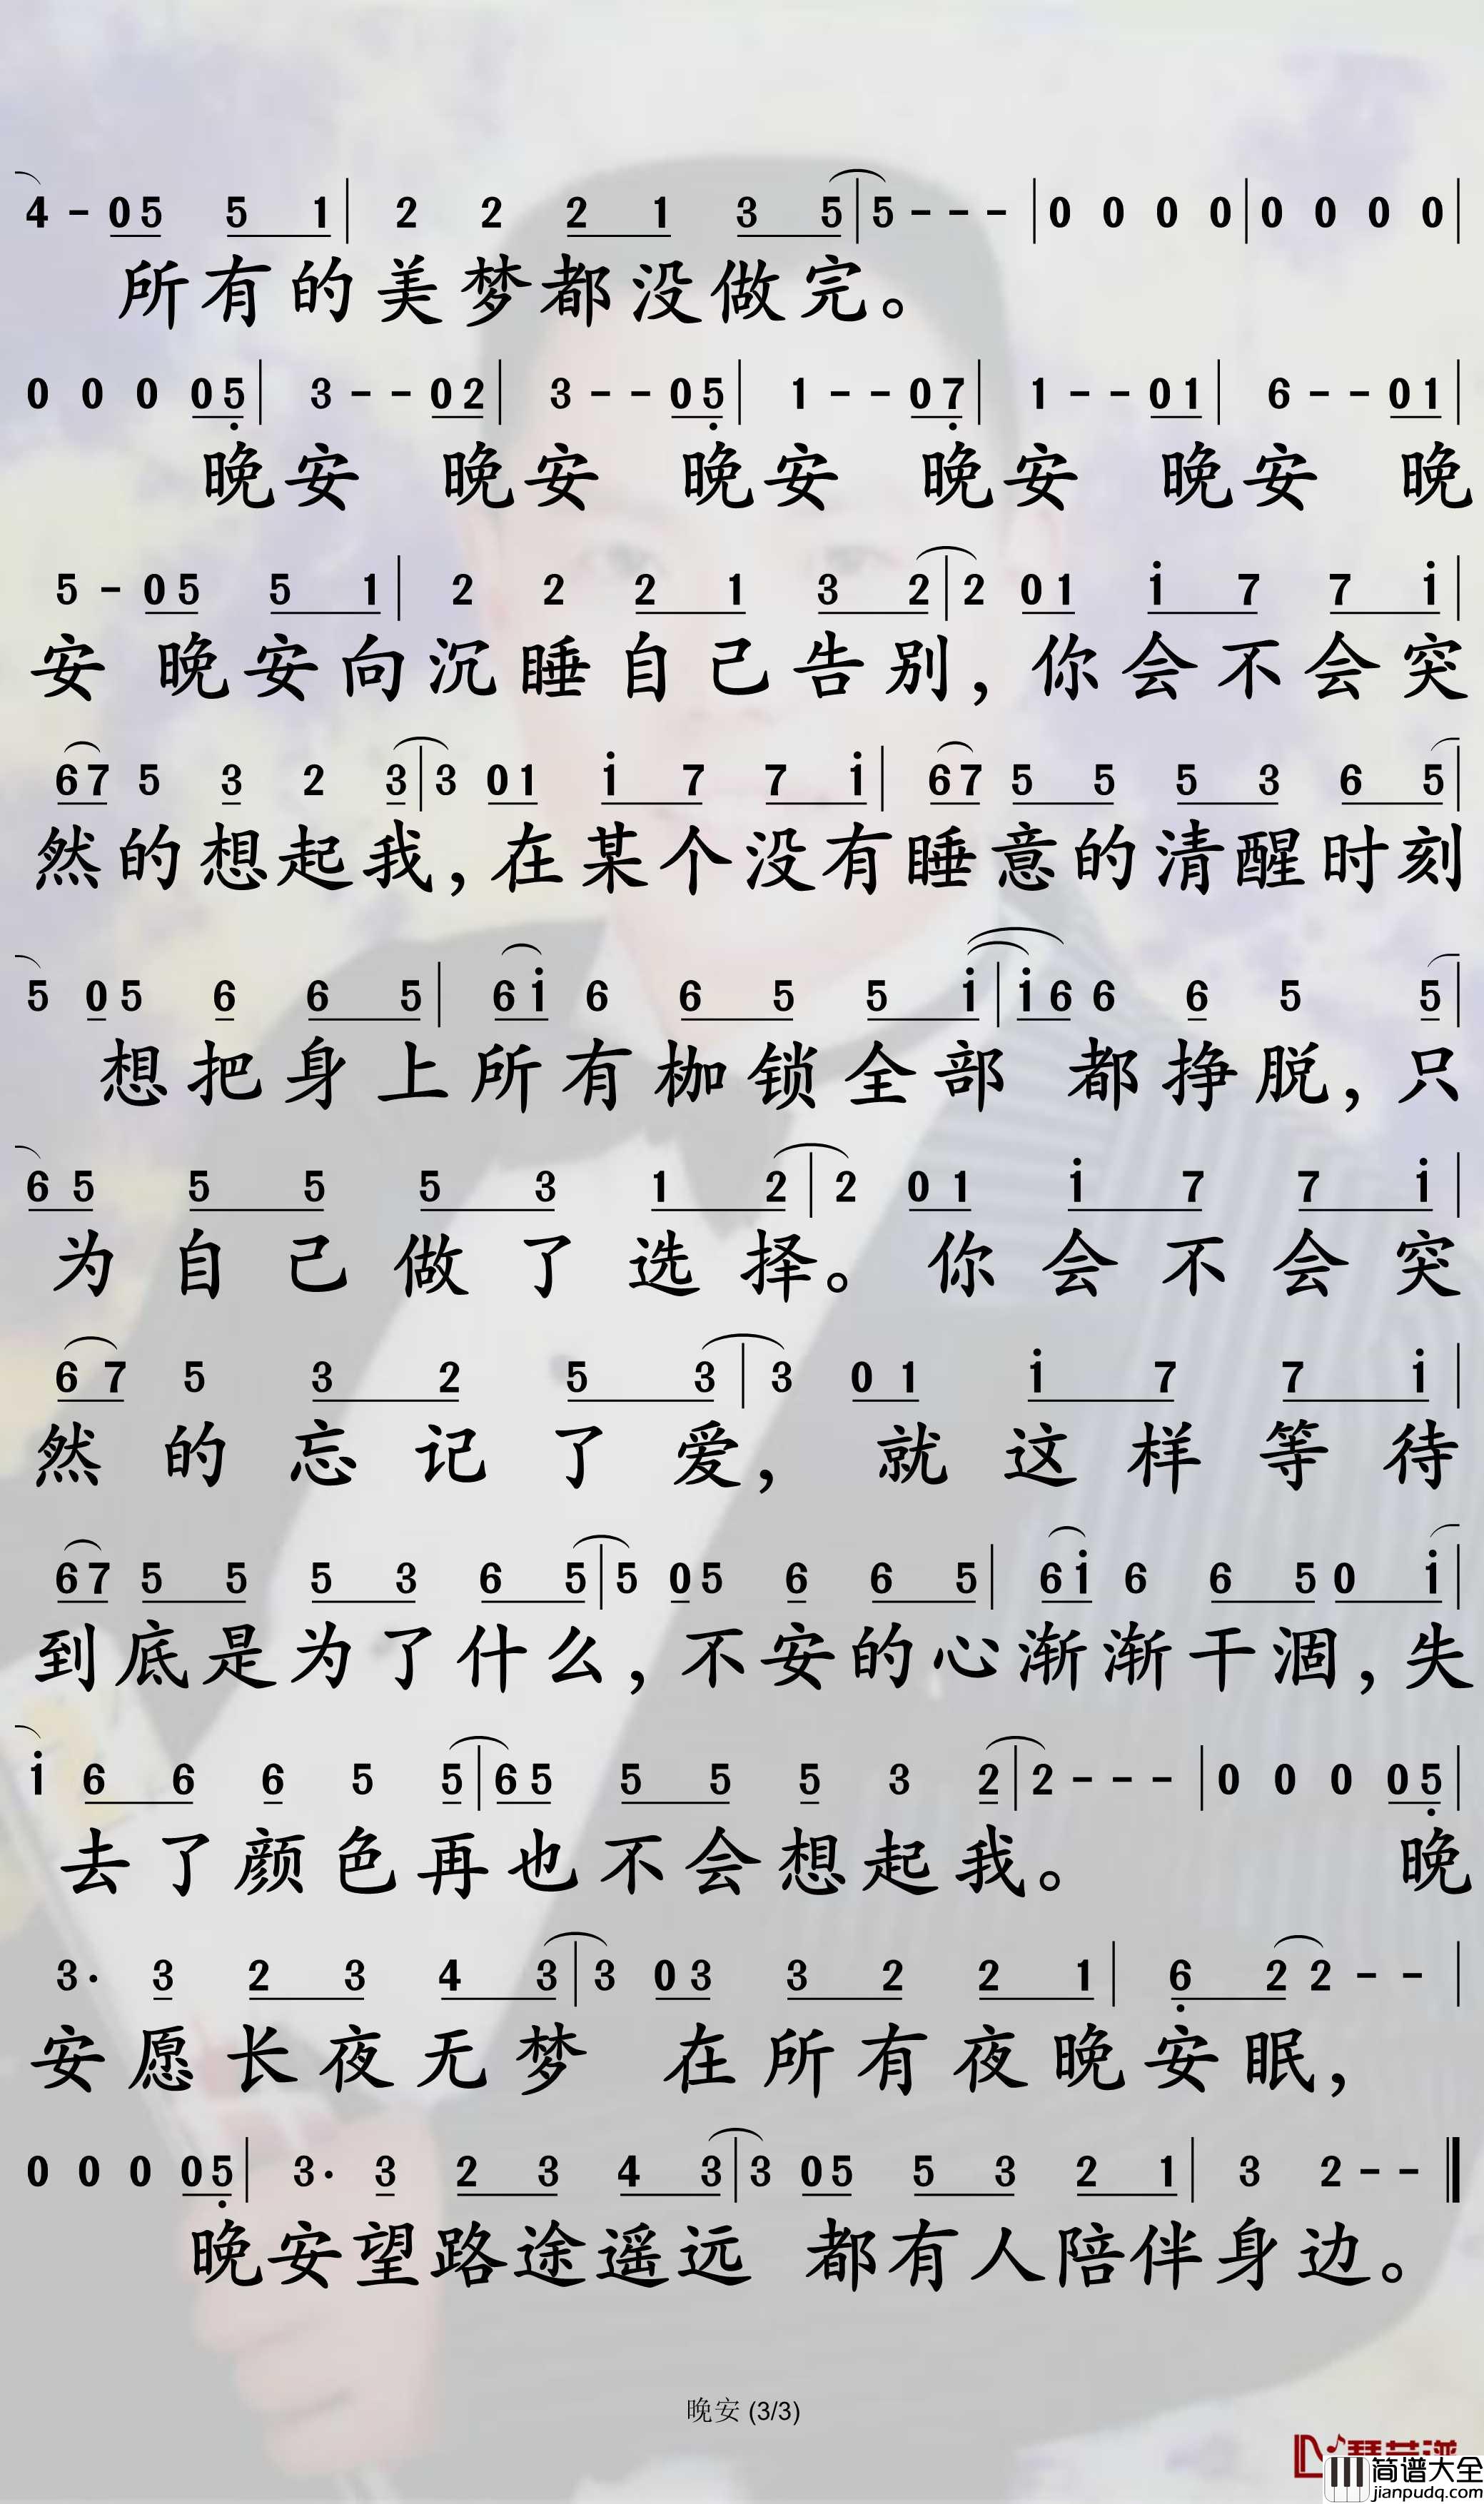 4 - 0 5 5 1 | 2 2 2 1 3 5 | 5 - - - | 0 0 0 0 | 0 0 0 0 |
所有的美梦都没做完。
0 0 0 0 5̣ | 3 - - 0 2 | 3 - - 0 5̣ | 1 - - 0 7̣ | 1 - - 0 1 | 6 - - 0 1 |
晚安 晚安 晚安 晚安 晚安 晚
5 - 0 5 5 1 | 2 2 2 1 3 2 | 2 0 1 i 7 7 i |
安 晚安向沉睡自己告别，你会不会突
6 7 5 3 2 3 | 3 0 1 i 7 7 i | 6 7 5 5 5 3 6 5 |
然的想起我，在某个没有睡意的清醒时刻
5 0 5 6 6 5 | 6 i 6 6 5 5 i | i 6 6 6 5 5 |
想把身上所有枷锁全部 都挣脱，只
6 5 5 5 5 3 1 2 | 2 0 1 i 7 7 i |
为自己做了选择。你会不会突
6 7 5 3 2 5 3 | 3 0 1 i 7 7 i |
然的忘记了爱，就这样等待
6 7 5 5 5 3 6 5 | 5 0 5 6 6 5 | 6 i 6 6 5 0 i |
到底是为了什么，不安的心渐渐干涸，失
i 6 6 6 5 5 | 6 5 5 5 5 3 2 | 2 - - - | 0 0 0 0 5̣ |
去了颜色再也不会想起我。 晚
3· 3 2 3 4 3 | 3 0 3 3 2 2 1 | 6̣ 2 2 - - |
安愿长夜无梦 在所有夜晚安眠，
0 0 0 0 5̣ | 3· 3 2 3 4 3 | 3 0 5 5 3 2 1 | 3 2 - - ‖
晚安望路途遥远 都有人陪伴身边。
晚安 (3/3)
简谱大全
jianpudq.com